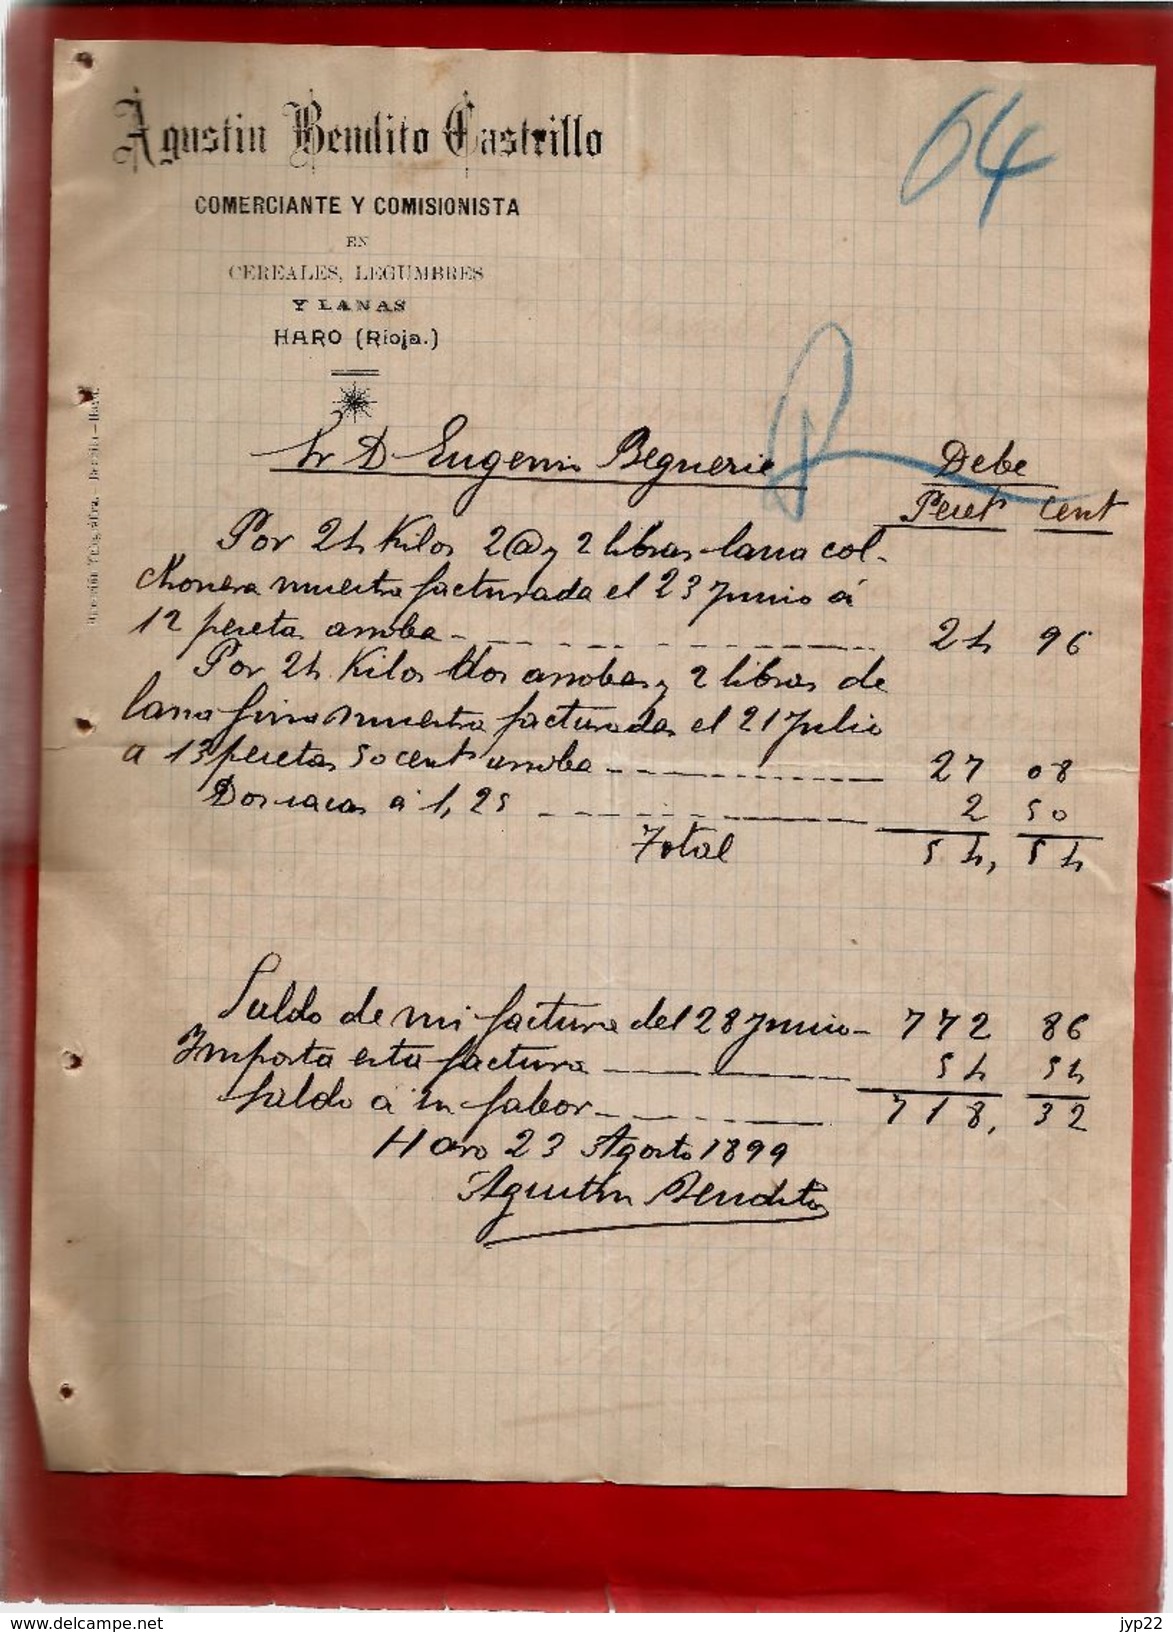 64
Agustin Bendito Castrillo
COMERCIANTE Y COMISIONISTA
EN
CEREALES, LEGUMBRES
Y LANAS
HARO (Rioja.)
Sr D. Eugenio Beguerie Debe
Peset cent
Por 24 Kilos 2@ y 2 libras lana col-
chonera muestra facturada el 23 Junio á
12 peseta arroba 24 96
Por 24 Kilos dos arrobas y 2 libras de
lana fina muestra facturadas el 21 Julio
a 13 pesetas 50 cent arroba 27 08
Dos sacas a 1,25 2 50
Total 54, 54
Saldo de mi factura del 28 Junio 772 86
Importa esta factura 54 54
Saldo a su fabor 718, 32
Haro 23 Agosto 1899
Agustin Bendito
delcampe.net
jyp22